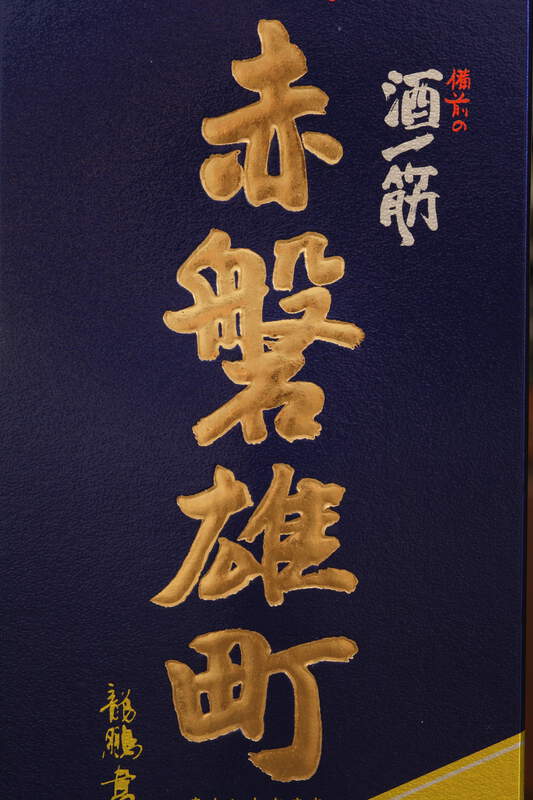 備前の
酒一筋
赤磐雄町